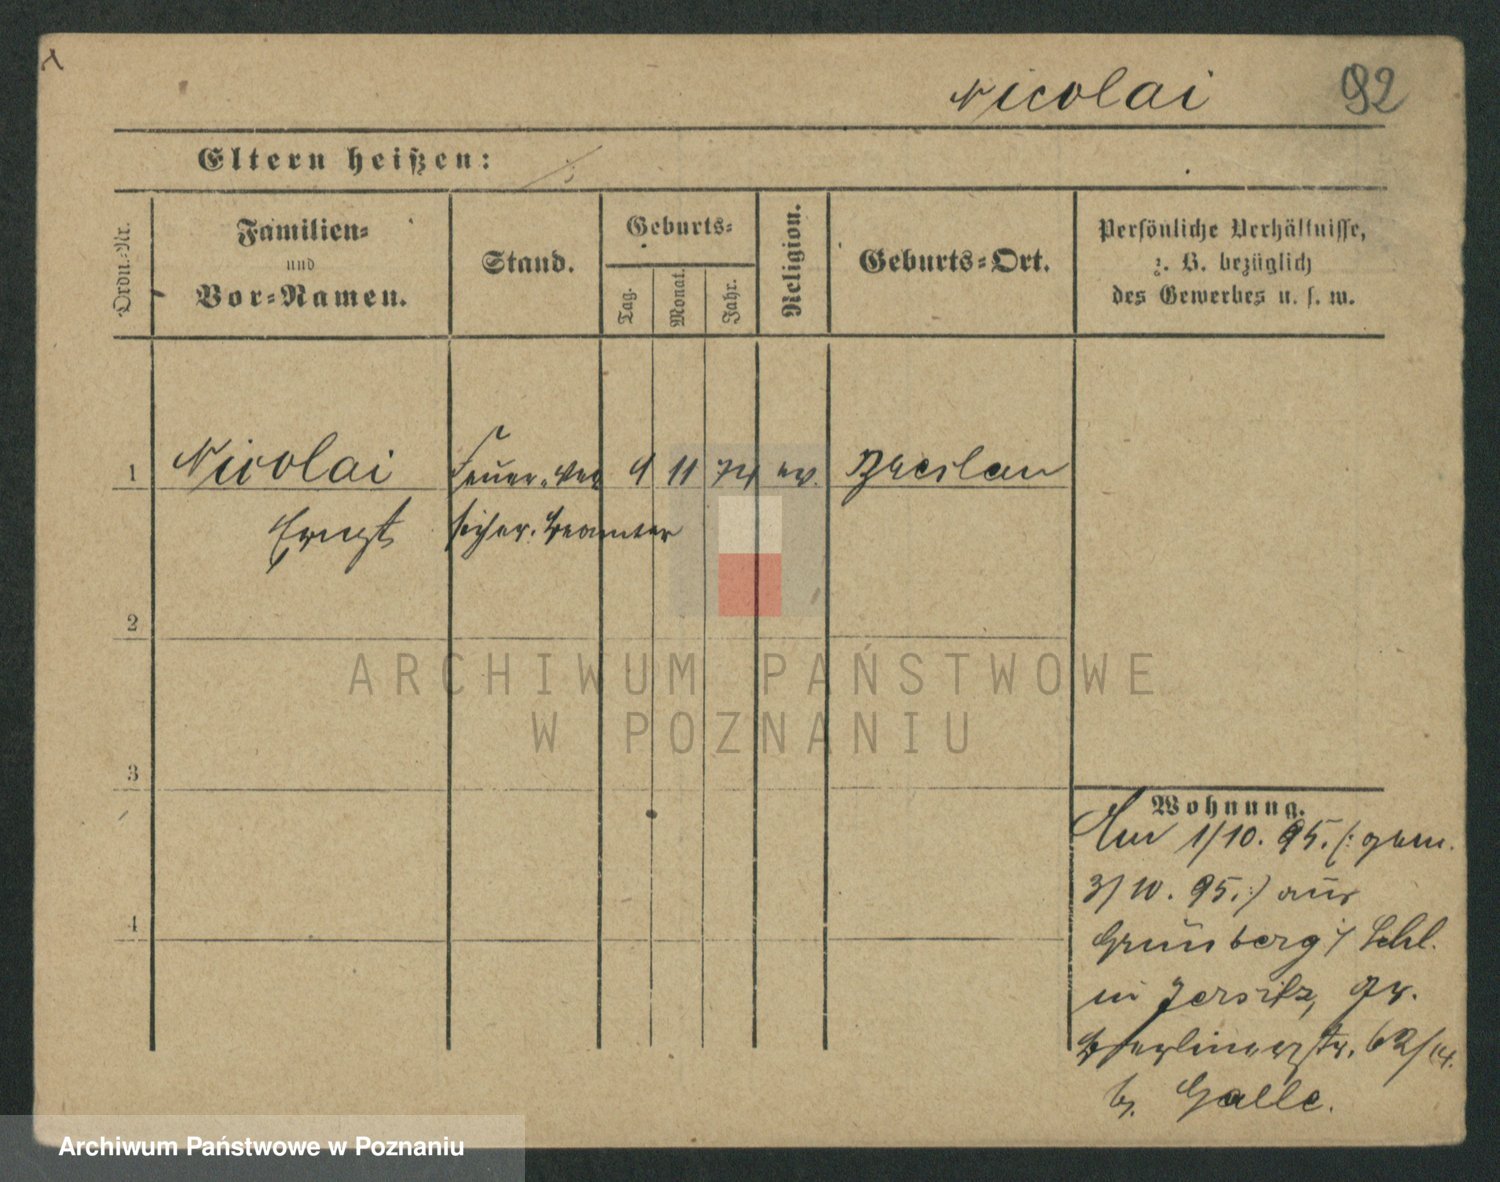 Nicolai 92
Eltern heißen:
Ordn.-Nr.
Familien-
und
Vor-Namen.
Stand.
Geburts-
Tag.
Monat.
Jahr.
Religion.
Geburts-Ort.
Persönliche Verhältnisse,
z. B. bezüglich
des Gewerbes u. s. w.
1 Nicolai Feuer-Ver 9 11 74 ev. Breslau
Ernst sicher. Beamter
2
ARCHIWUM PAŃSTWOWE
W POZNANIU
3
Wohnung.
Am 1/10. 95. (: gem.
3/10. 95. :) aus
4
Grünberg i/ Schl.
in Jersitz, Gr.
Berlinerstr. 62/
b. Galle.
Archiwum Państwowe w Poznaniu